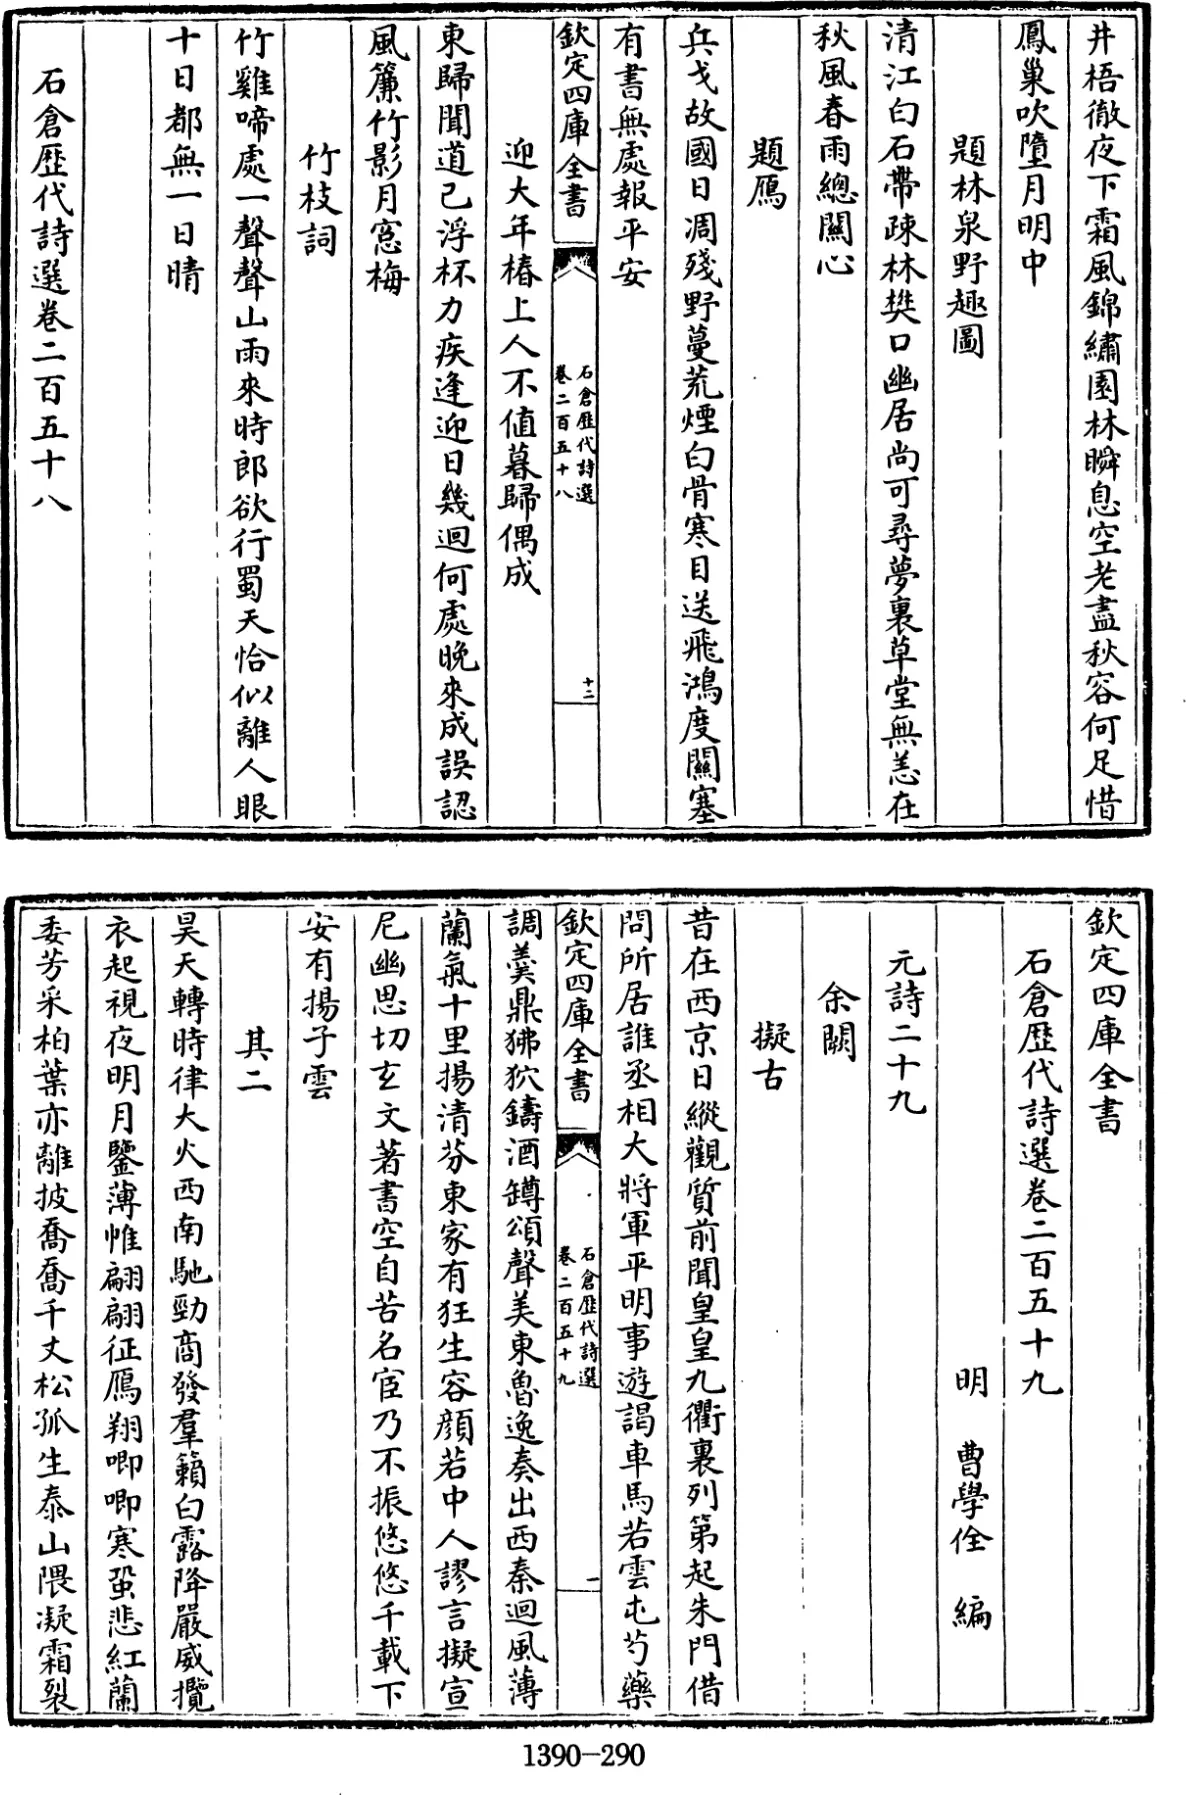 井梧徹夜下霜風錦繡園林瞬息空老盡秋容何足惜
鳳巢吹墮月明中
題林泉野趣圖
清江白石帶疎林樊口幽居尚可尋夢裏草堂無恙在
秋風春雨總關心
題鴈
兵戈故國日凋殘野蔓荒煙白骨寒目送飛鴻度關塞
有書無處報平安
欽定四庫全書
石倉歷代詩選
卷二百五十八
十二
迎大年椿上人不值暮歸偶成
東歸聞道已浮杯力疾逢迎日幾迴何處晚來成誤認
風簾竹影月窻梅
竹枝詞
竹雞啼處一聲聲山雨來時郎欲行蜀天恰似離人眼
十日都無一日晴
石倉歷代詩選卷二百五十八
欽定四庫全書
石倉歷代詩選卷二百五十九
明 曹學佺 編
元詩二十九
余闕
擬古
昔在西京日縱觀質前聞皇皇九衢裏列第起朱門借
問所居誰丞相大將軍平明事遊謁車馬若雲屯芍藥
欽定四庫全書
石倉歷代詩選
卷二百五十九
一
調羹鼎狒狖鑄酒罇頌聲美東魯逸奏出西秦迴風薄
蘭氣十里揚清芬東家有狂生容顔若中人謬言擬宣
尼幽思切玄文著書空自苦名宦乃不振悠悠千載下
安有揚子雲
其二
昊天轉時律大火西南馳勁商發羣籟白露降嚴威攬
衣起視夜明月鑒薄帷翩翩征鴈翔唧唧寒蛩悲紅蘭
委芳采柏葉亦離披喬喬千丈松孤生泰山隈凝霜裂
1390-290